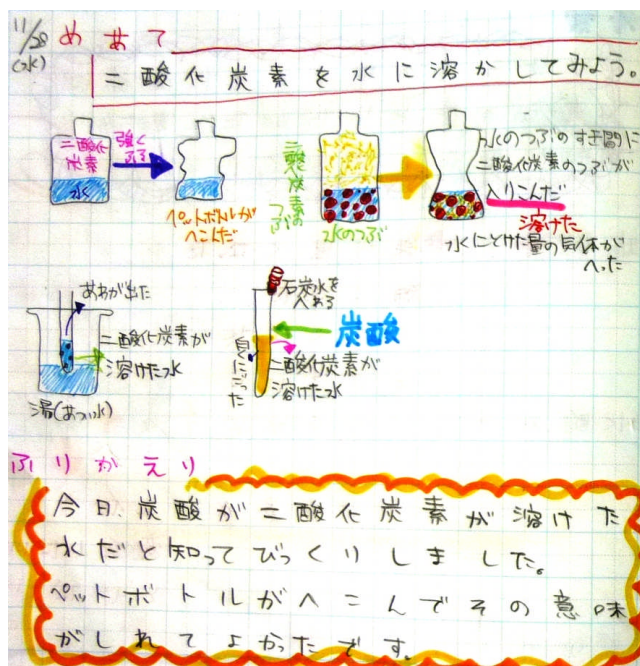 11/28
(水)
めあて
二酸化炭素を水に溶かしてみよう。
二酸化
炭素
水
強く
ふる
ペットボトルが
へこんだ
二酸化炭素の
つぶ
水のつぶ
水のつぶのすき間に
二酸化炭素のつぶが
入りこんだ
溶けた
水にとけた量の気体が
へった
あわが出た
二酸化炭素が
溶けた水
湯(あつい水)
石炭水を
入れる
炭酸
白くにごった
二酸化炭素が
溶けた水
ふりかえり
今日、炭酸が二酸化炭素が溶けた
水だと知ってびっくりしました。
ペットボトルがへこんでその意味
がしれてよかったです。